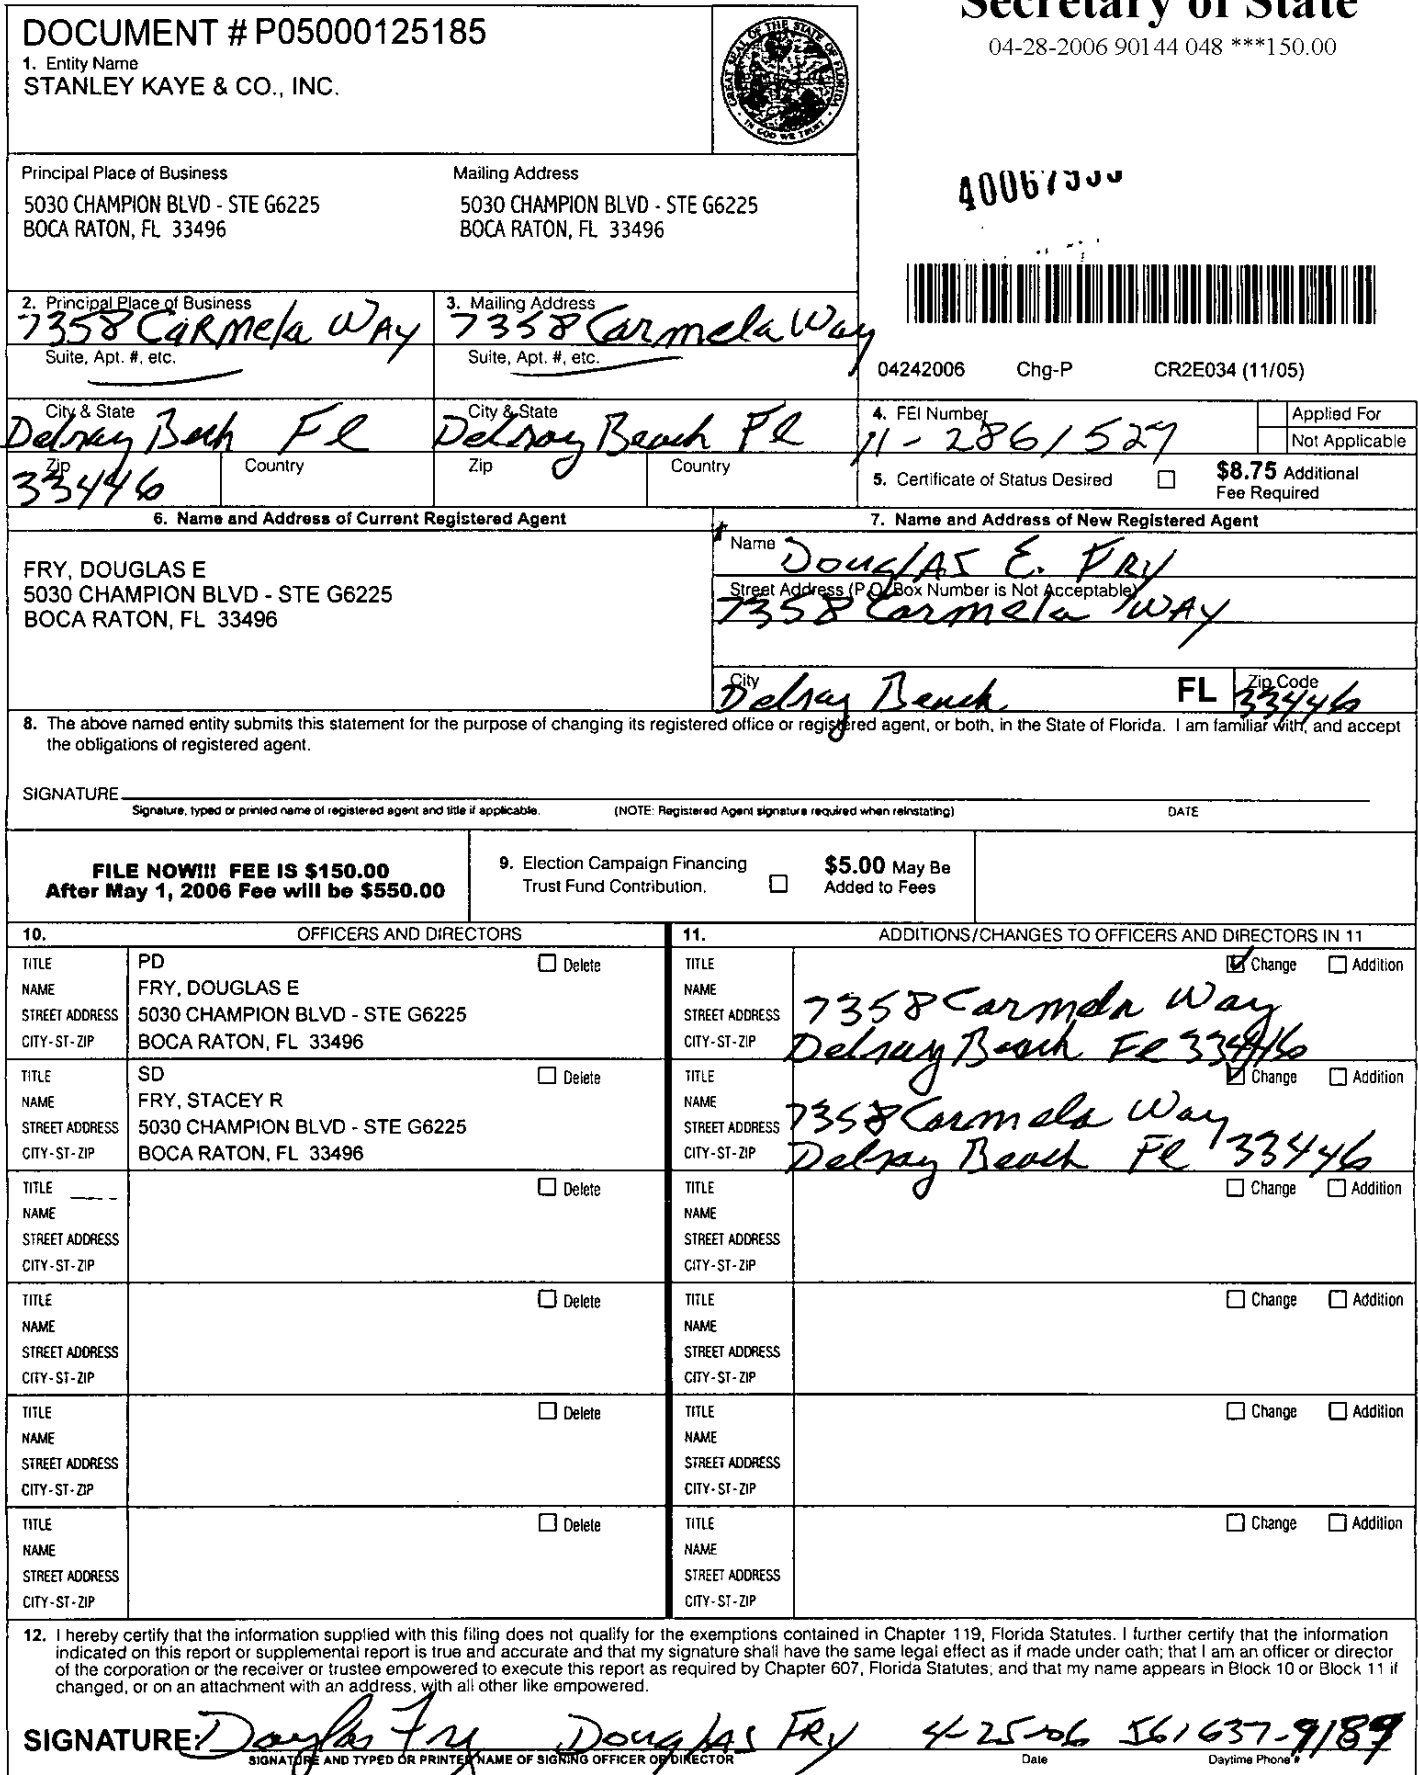 Secretary of State
04-28-2006 90144 048 ***150.00
DOCUMENT # P05000125185
1. Entity Name
STANLEY KAYE & CO., INC.
GREAT SEAL OF THE STATE OF FLORIDA
IN GOD WE TRUST
Principal Place of Business
5030 CHAMPION BLVD - STE G6225
BOCA RATON, FL 33496
Mailing Address
5030 CHAMPION BLVD - STE G6225
BOCA RATON, FL 33496
2. Principal Place of Business
7358 Carmela Way
Suite, Apt. #, etc.
City & State
Delray Bech Fl
Zip
33446
Country
3. Mailing Address
7358 Carmela Way
Suite, Apt. #, etc.
City & State
Delray Beach Fl
Zip
Country
04242006 Chg-P CR2E034 (11/05)
4. FEI Number
11-2861527
Applied For
Not Applicable
5. Certificate of Status Desired
$8.75 Additional
Fee Required
6. Name and Address of Current Registered Agent
FRY, DOUGLAS E
5030 CHAMPION BLVD - STE G6225
BOCA RATON, FL 33496
7. Name and Address of New Registered Agent
Name
Douglas E. Fry
Street Address (P.O. Box Number is Not Acceptable)
7358 Carmela Way
City
Delray Beach
FL
Zip Code
33446
8. The above named entity submits this statement for the purpose of changing its registered office or registered agent, or both, in the State of Florida. I am familiar with, and accept
the obligations of registered agent.
SIGNATURE
Signature, typed or printed name of registered agent and title if applicable. (NOTE: Registered Agent signature required when reinstating) DATE
FILE NOW!!! FEE IS $150.00
After May 1, 2006 Fee will be $550.00
9. Election Campaign Financing
Trust Fund Contribution.
$5.00 May Be
Added to Fees
10. OFFICERS AND DIRECTORS
TITLE PD Delete
NAME FRY, DOUGLAS E
STREET ADDRESS 5030 CHAMPION BLVD - STE G6225
CITY-ST-ZIP BOCA RATON, FL 33496
TITLE SD Delete
NAME FRY, STACEY R
STREET ADDRESS 5030 CHAMPION BLVD - STE G6225
CITY-ST-ZIP BOCA RATON, FL 33496
TITLE Delete
NAME
STREET ADDRESS
CITY-ST-ZIP
TITLE Delete
NAME
STREET ADDRESS
CITY-ST-ZIP
TITLE Delete
NAME
STREET ADDRESS
CITY-ST-ZIP
TITLE Delete
NAME
STREET ADDRESS
CITY-ST-ZIP
11. ADDITIONS/CHANGES TO OFFICERS AND DIRECTORS IN 11
TITLE Change Addition
NAME
STREET ADDRESS 7358 Carmela Way
CITY-ST-ZIP Delray Beach Fl 33446
TITLE Change Addition
NAME
STREET ADDRESS 7358 Carmela Way
CITY-ST-ZIP Delray Beach Fl 33446
TITLE Change Addition
NAME
STREET ADDRESS
CITY-ST-ZIP
TITLE Change Addition
NAME
STREET ADDRESS
CITY-ST-ZIP
TITLE Change Addition
NAME
STREET ADDRESS
CITY-ST-ZIP
TITLE Change Addition
NAME
STREET ADDRESS
CITY-ST-ZIP
12. I hereby certify that the information supplied with this filing does not qualify for the exemptions contained in Chapter 119, Florida Statutes. I further certify that the information
indicated on this report or supplemental report is true and accurate and that my signature shall have the same legal effect as if made under oath; that I am an officer or director
of the corporation or the receiver or trustee empowered to execute this report as required by Chapter 607, Florida Statutes; and that my name appears in Block 10 or Block 11 if
changed, or on an attachment with an address, with all other like empowered.
SIGNATURE: Douglas Fry Douglas Fry 4-25-06 561 637-9189
SIGNATURE AND TYPED OR PRINTED NAME OF SIGNING OFFICER OR DIRECTOR Date Daytime Phone #